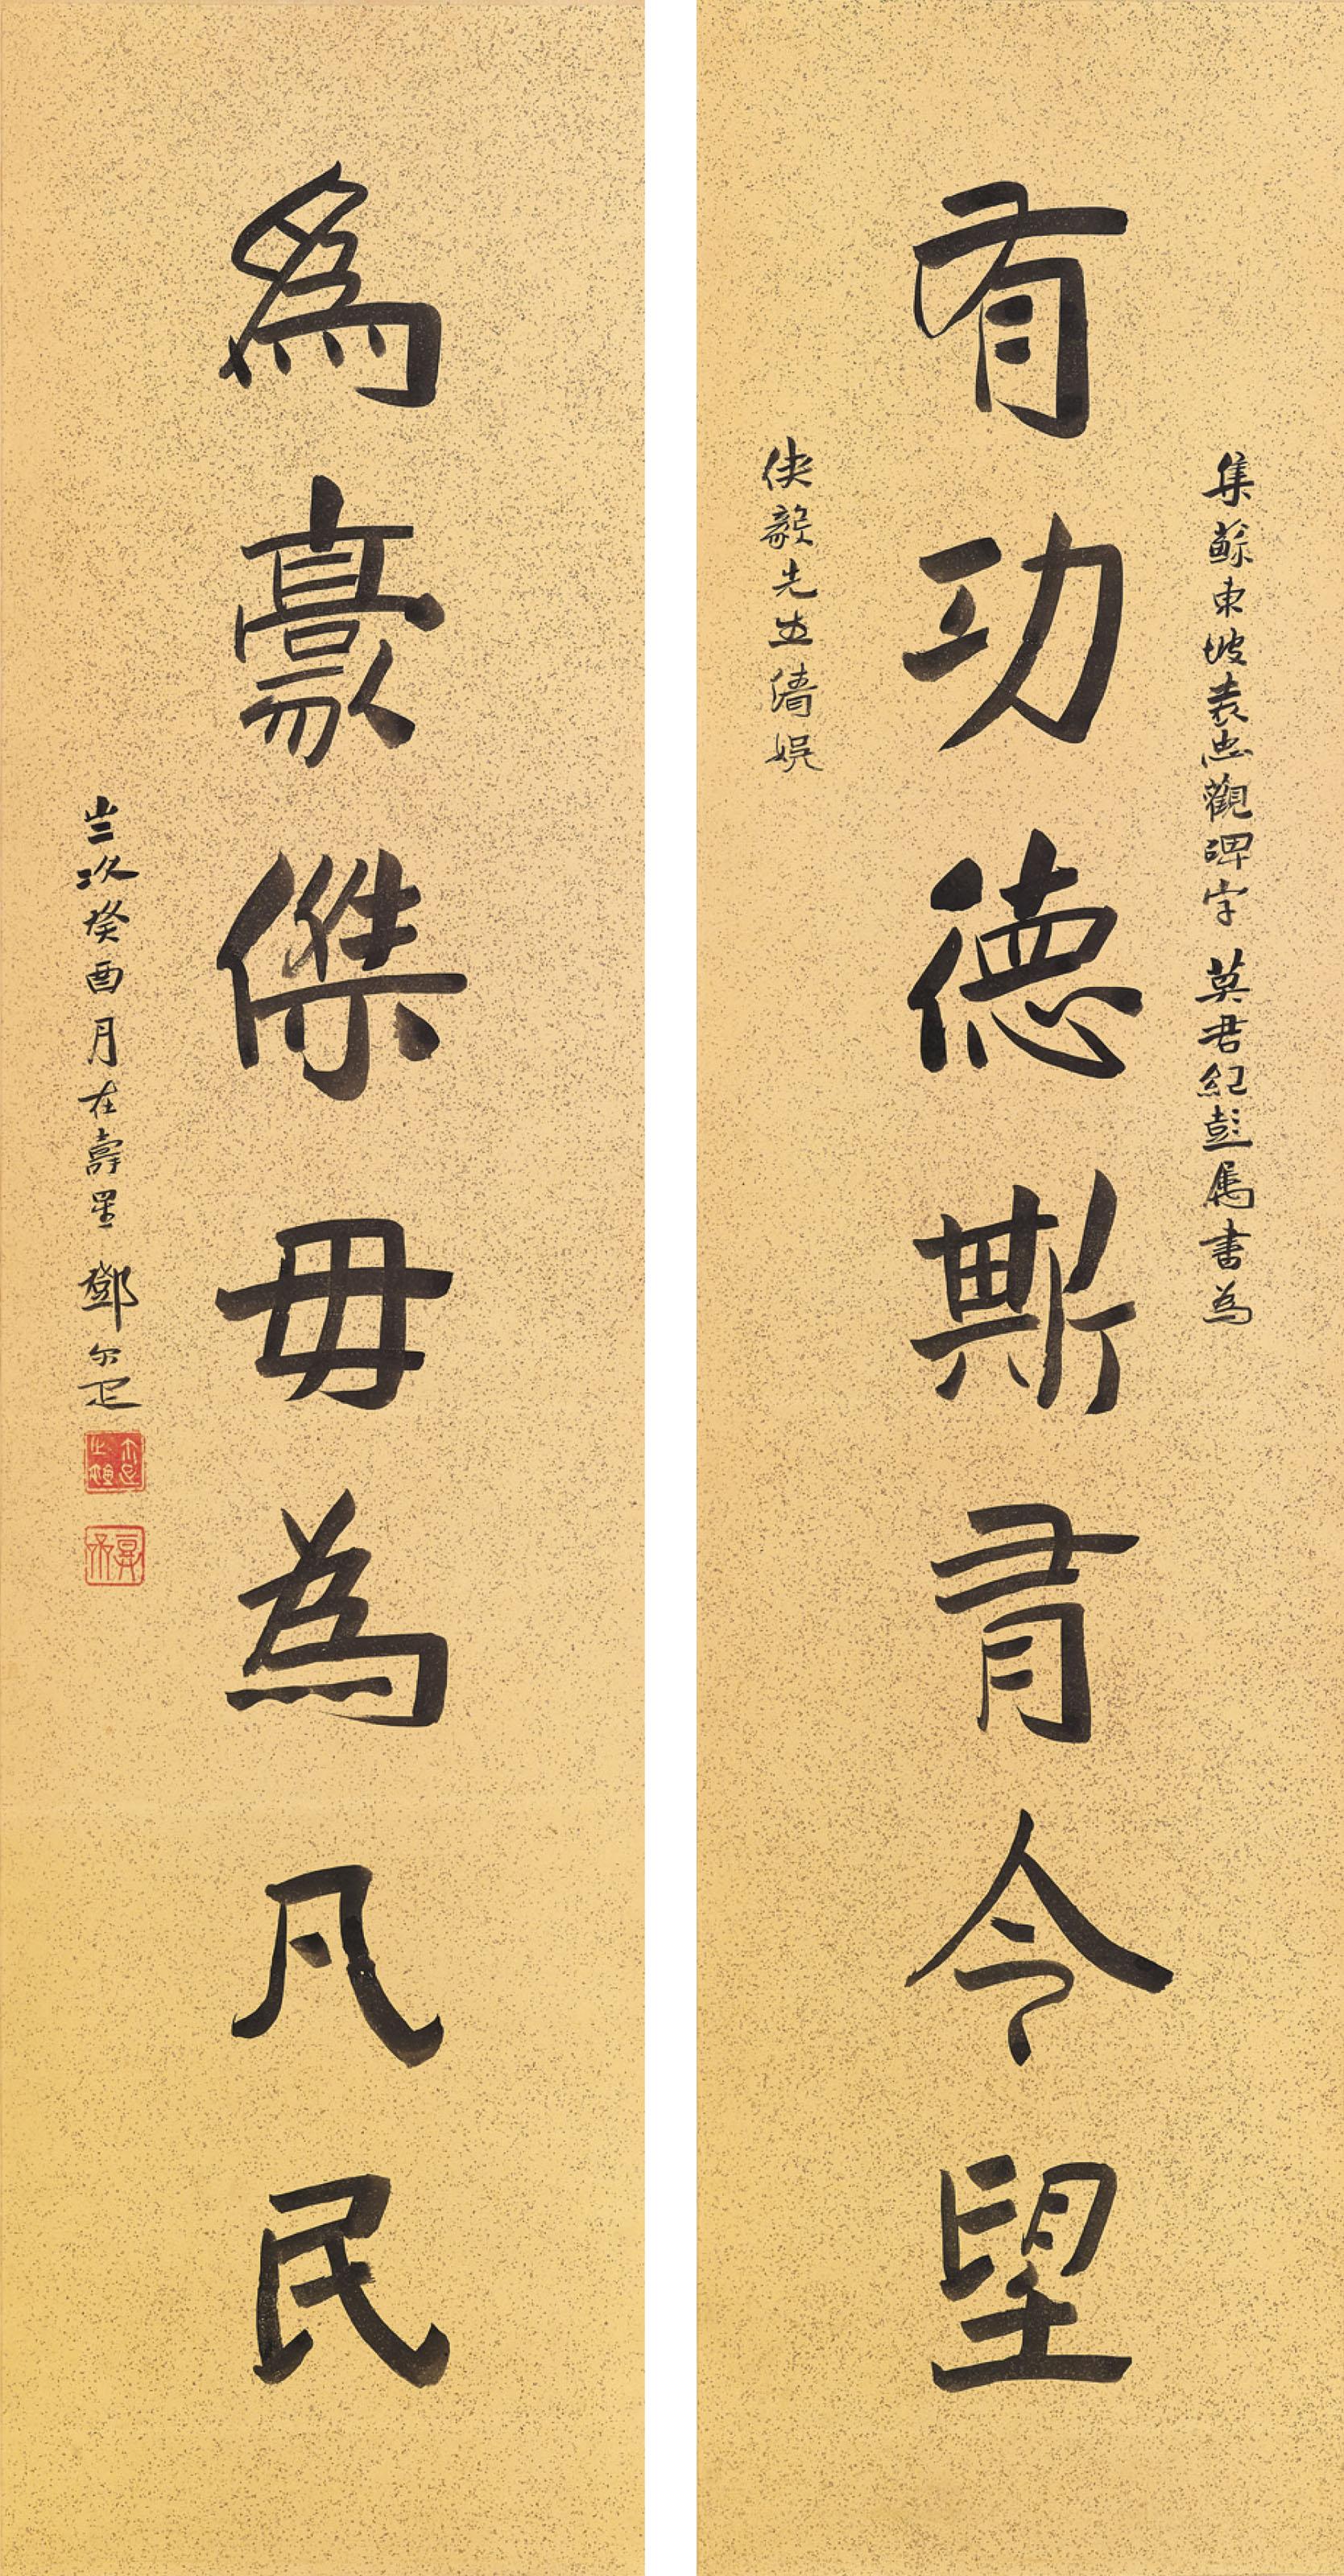 集蘇東坡表忠觀碑字 莫君紀彭属書為
有功德斯有令望
俠毅先生清娱
為豪傑毋為凡民
歲次癸酉月在壽星 鄧尔疋